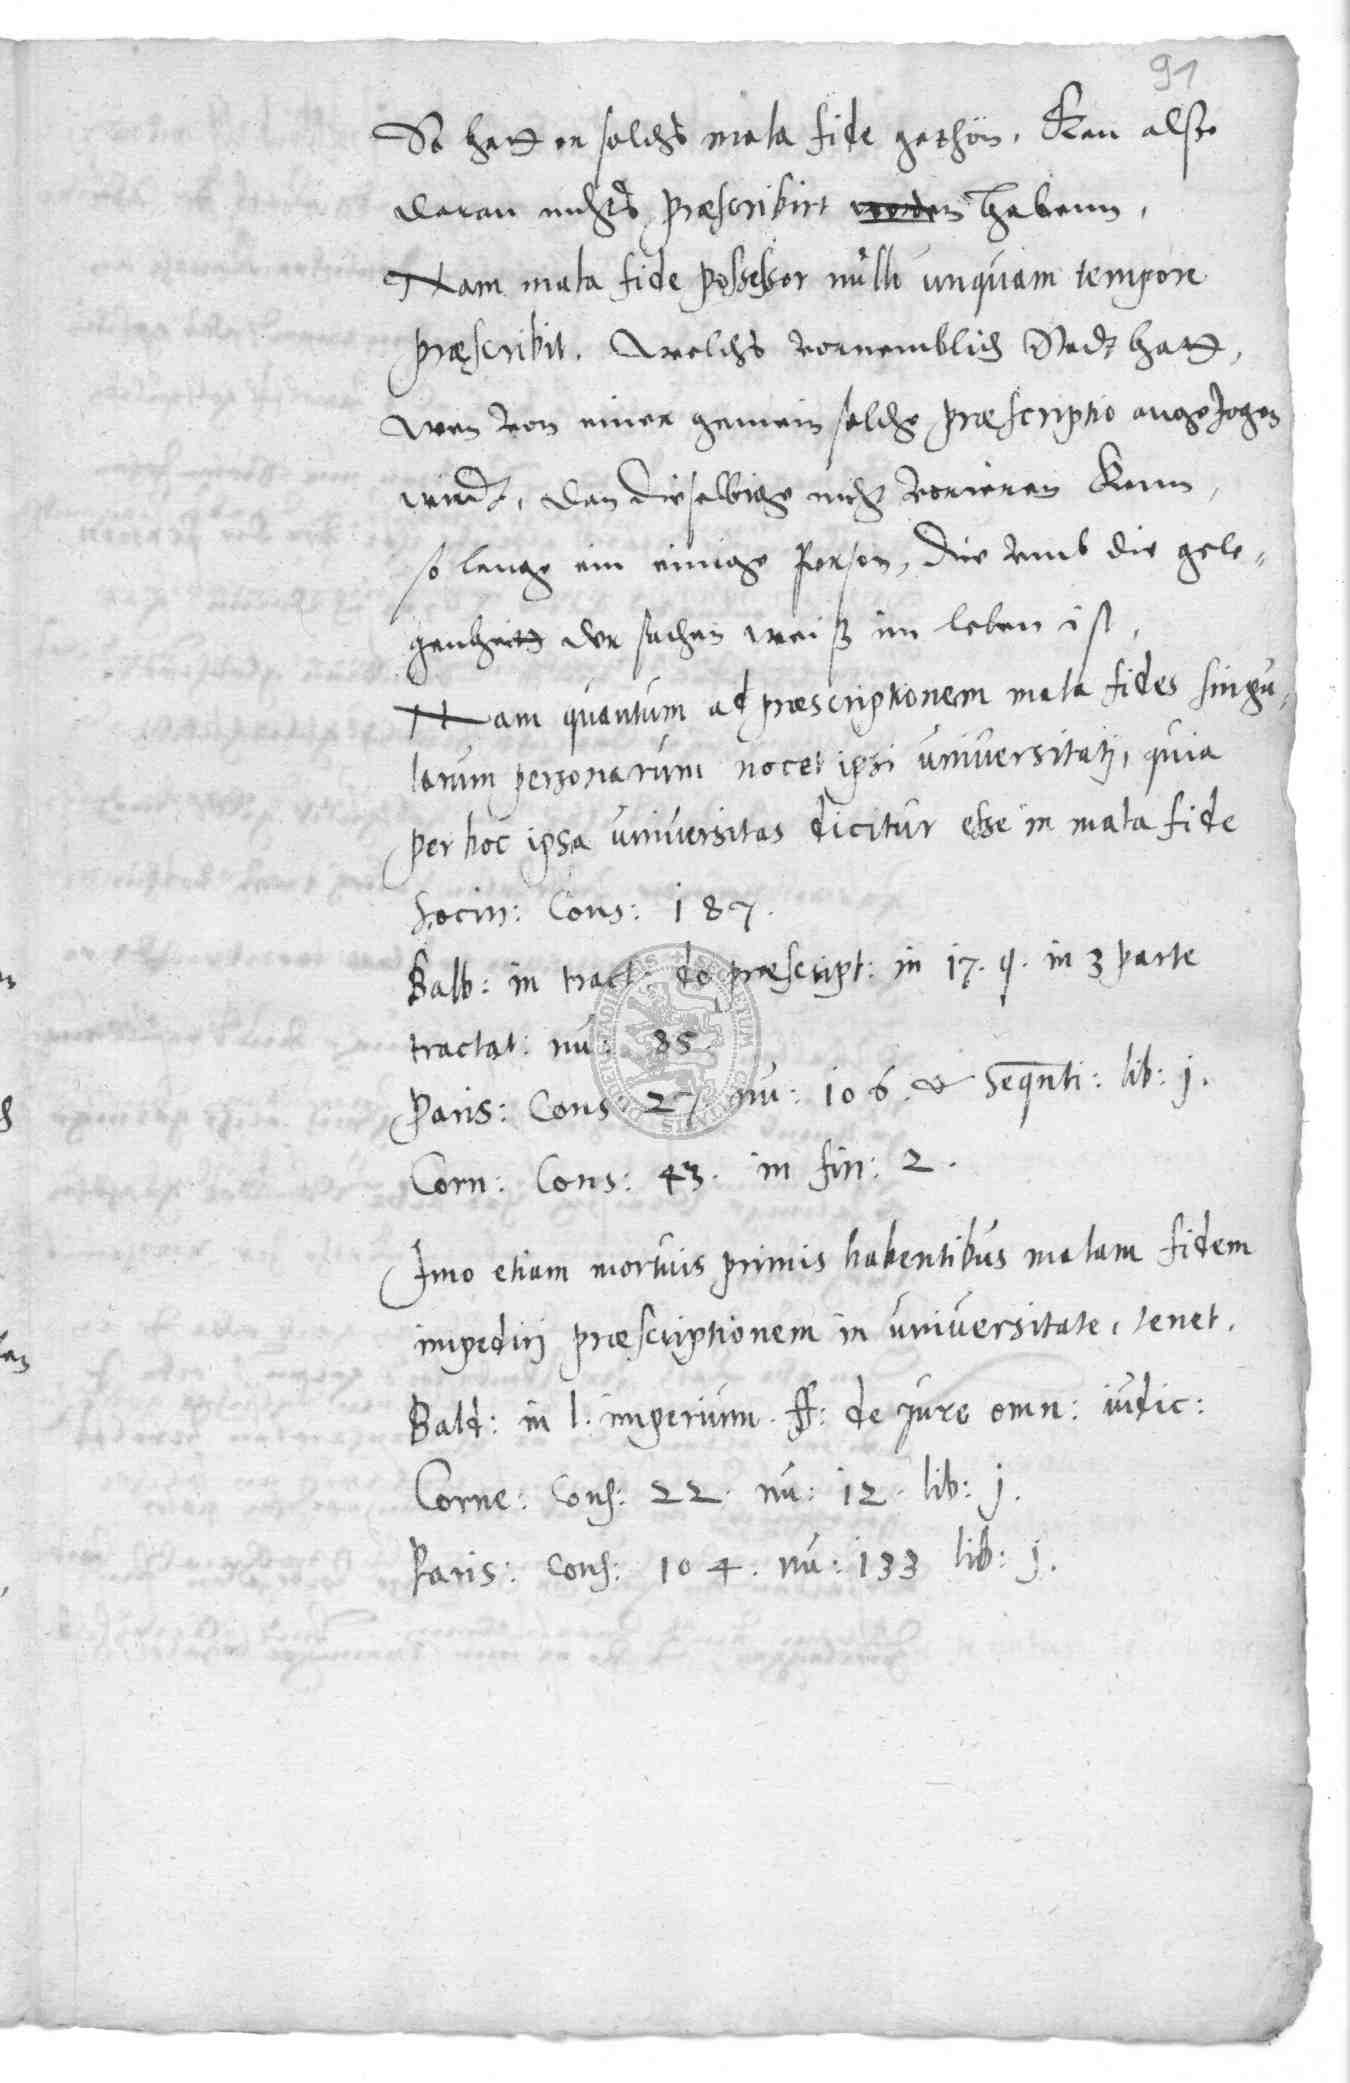 91
So hatt er solchs mala fide gethon. Kan also
daran nichts præscribirt werden habenn,
Nam mala fide possessor nullo unquam tempore
præscribit. welchs vornemblich Stadt hatt,
wen von einer gemein solche præscriptio angezogen
wirdt, dan dieselbige nicht verieren kenn,
so lange ein einige Person, die umb die gele-
genheitt der sachen weiß im leben ist,
Nam quantum ad præscriptionem mala fides singu-
larum personarum nocet ipsi universitatj, quia
per hoc ipsa universitas dicitur esse in mala fide
Socin: Cons: 187.
Balb: in tract: de præscript: in 17. q. in 3 parte
tractat: nu: 85.
Paris: Cons 27 nu: 106. & seqnti: lib: j.
Corn: Cons: 43. in fin: 2.
Imo etiam mortuis primis habentibus malam fidem
impedirj præscriptionem in universitate, tenet.
Bald: in l. imperium. ff: de jure omn: iudic:
Corne: cons: 22. nu: 12. lib: j.
Paris: cons: 104. nu: 133 lib: j.